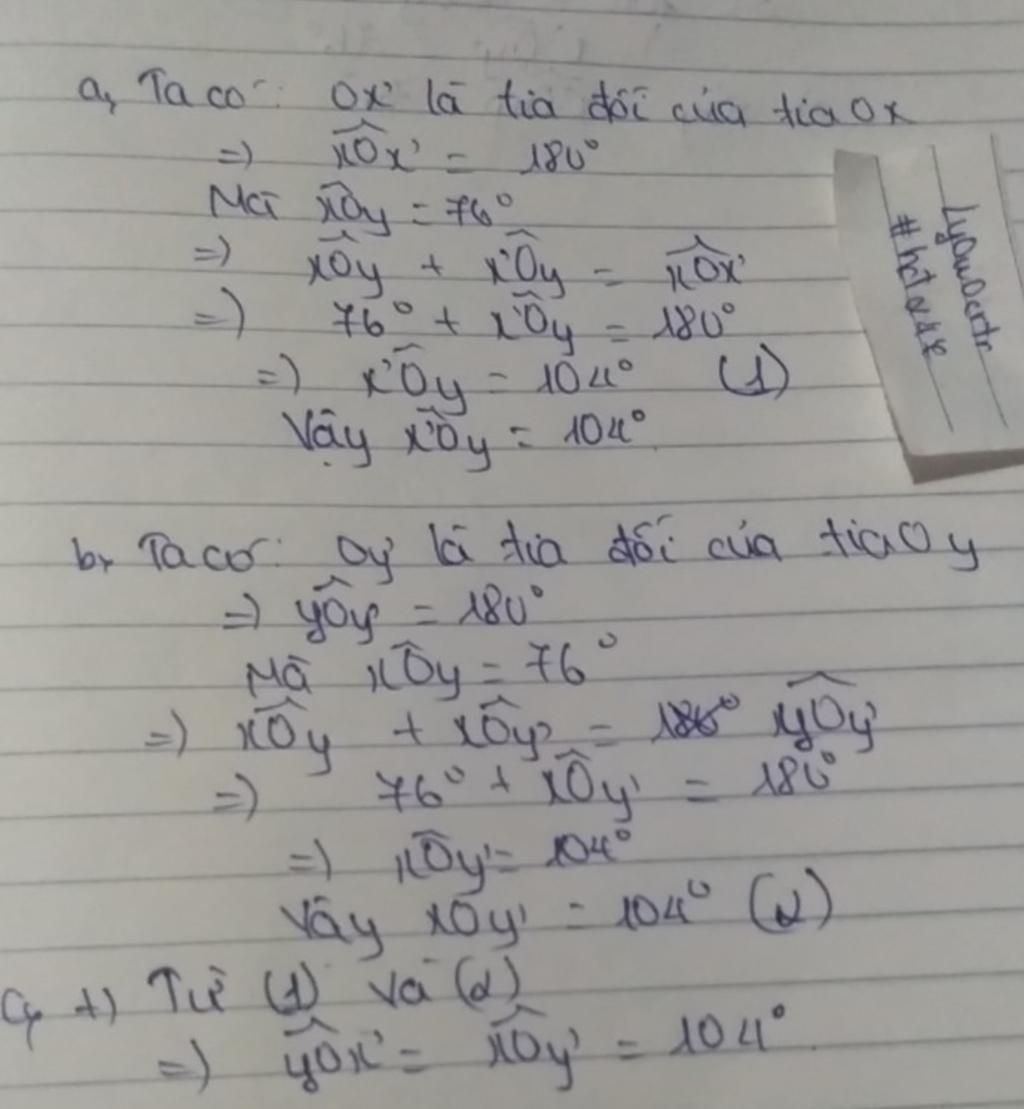 a, Ta có: Ox' là tia đối của tia Ox
=) xOx' = 180°
Mà xOy = 76°
=) xOy + x'Oy = xOx'
=) 76° + x'Oy = 180°
=) x'Oy = 104° (1)
Vậy x'Oy = 104°
b, Ta có: Oy' là tia đối của tia Oy
=) yOy' = 180°
Mà xOy = 76°
=) xOy + xOy' = 180° yOy'
=) 76° + xOy' = 180°
=) xOy' = 104°
Vậy xOy' = 104° (2)
c, +) Từ (1) và (2)
=) yOx' = xOy' = 104°